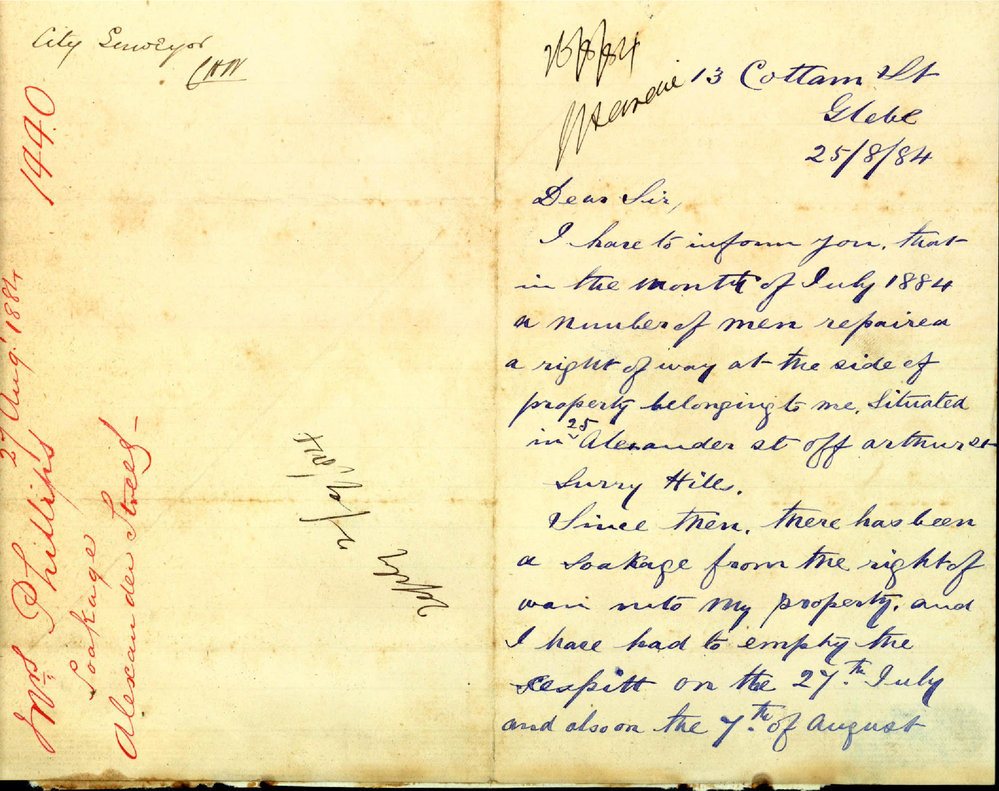 City Surveyor
1440
27 Aug: 1884
Mrs Phillips
Soakage
Alexander Street
26/8/84
13 Cottam St
Glebe
25/8/84
Dear Sir,
I have to inform you, that
in the month of July 1884
a number of men repaired
a right of way at the side of
property belonging to me, Situated
in 25 Alexander st off arthur st
Surry Hills.
Since then, there has been
a Soakage from the right of
wai into my property, and
I have had to empty the
Sesspitt on the 27th July
and also on the 7th of August